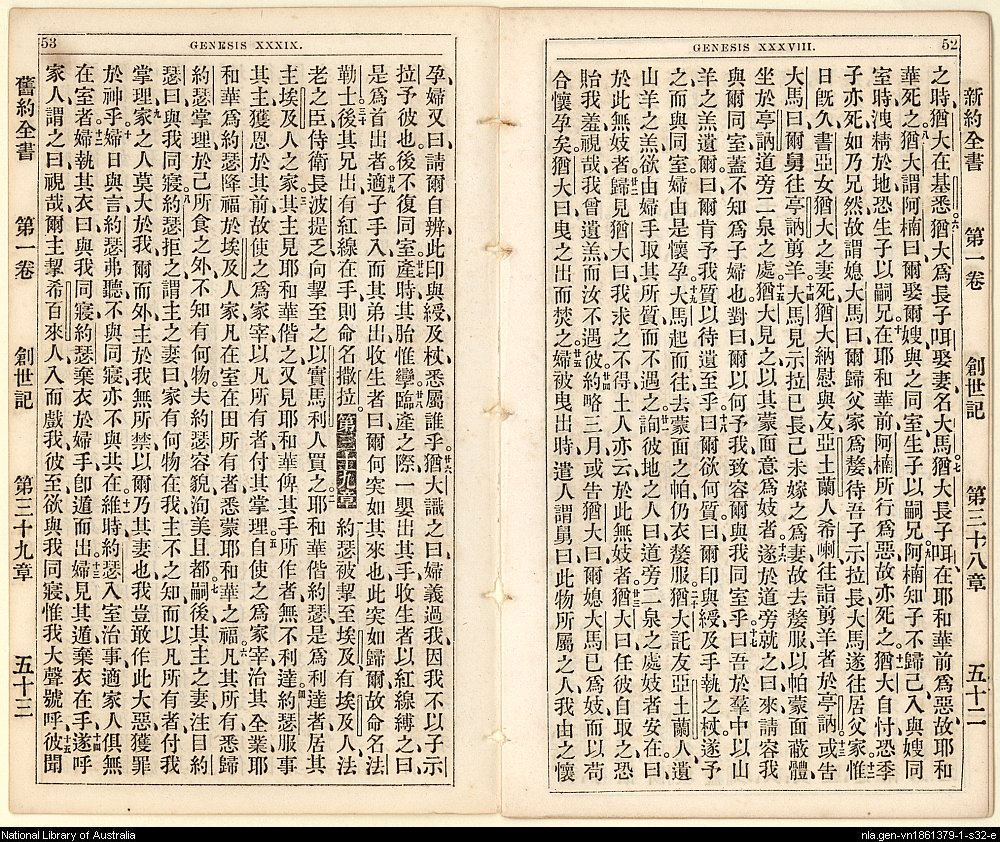 52
GENESIS XXXVIII.
新約全書 第一卷 創世記 第三十八章 五十二
之時、猶大在基悉。六猶大爲長子咡娶妻、名大馬。七猶大長子咡、在耶和華前爲惡、故耶和
華死之。八猶大謂阿楠曰、爾娶爾嫂、與之同室、生子以嗣兄。九阿楠知子不歸己、入與嫂同
室時、洩精於地、恐生子以嗣兄。十在耶和華前阿楠所行爲惡、故亦死之。十一猶大自忖、恐季
子亦死如乃兄然、故謂媳大馬曰、爾歸父家爲嫠、待吾子示拉長、大馬遂往居父家。十二惟
日旣久、書亞女猶大之妻死、猶大納慰、與友亞土蘭人希喇、往詣剪羊者於亭訥。十三或告
大馬曰、爾舅往亭訥剪羊。十四大馬見示拉已長、己未嫁之爲妻、故去嫠服、以帕蒙面蔽體、
坐於亭訥道旁、二泉之處。十五猶大見之、以其蒙面、意爲妓者。十六遂於道旁就之曰、來、請容我
與爾同室、蓋不知爲子婦也、對曰、爾以何予我、致容爾與我同室乎。十七曰、吾於羣中、以山
羊之羔遺爾、曰、爾肯予我質、以待遺至乎。十八曰、爾欲何質、曰、爾印與綬、及手執之杖、遂予
之、而與同室、婦由是懷孕。十九大馬起而往、去蒙面之帕、仍衣嫠服。二十猶大託友亞土蘭人、遺
山羊之羔、欲由婦手取其所質、而不遇之。廿一詢彼地之人曰、道旁二泉之處、妓者安在、曰、
於此無妓者。廿二歸見猶大曰、我求之不得、土人亦云、於此無妓者。廿三猶大曰、任彼自取之、恐
貽我羞、視哉、我曾遺羔、而汝不遇彼。廿四約略三月、或告猶大曰、爾媳大馬已爲妓、而以苟
合懷孕矣、猶大曰、曳之出而焚之。廿五婦被曳出時、遣人謂舅曰、此物所屬之人、我由之懷
53
GENESIS XXXIX.
孕、婦又曰、請爾自辨、此印與綬及杖、悉屬誰乎。廿六猶大識之曰、婦義過我、因我不以子示
拉予彼也、後不復同室。廿七產時、其胎惟孿。廿八臨產之際、一嬰出其手、收生者以紅線縛之曰、
是爲首出者。廿九適子手入、而其弟出、收生者曰、爾何突如其來也、此突如歸爾、故命名法
勒士。三十後其兄出、有紅線在手、則命名撒拉。第三十九章 一約瑟被挈至埃及、有埃及人、法
老之臣、侍衛長波提乏、向挈至之以實馬利人買之。二耶和華偕約瑟、是爲利達者、居其
主埃及人之家。三其主見耶和華偕之、又見耶和華俾其手所作者、無不利達。四約瑟服事
其主、獲恩於其前、故使之爲家宰、以凡所有者、付其掌理。五自使之爲家宰、治其全業、耶
和華爲約瑟降福於埃及人家、凡在室在田所有者、悉蒙耶和華之福。六凡其所有、悉歸
約瑟掌理、於己所食之外、不知有何物、夫約瑟容貌洵美且都。七嗣後其主之妻、注目約
瑟曰、與我同寢。八約瑟拒之、謂主之妻曰、家有何物在我、主不之知、而以凡所有者、付我
掌理。九家之人莫大於我、爾而外、主於我無所禁、以爾乃其妻也、我豈敢作此大惡、獲罪
於神乎。十婦日與言、約瑟弗聽、不與同寢、亦不與其在。十一維時約瑟入室治事、適家人俱無
在室者。十二婦執其衣曰、與我同寢、約瑟棄衣於婦手、卽遁而出。十三婦見其遁、棄衣在手。十四遂呼
家人謂之曰、視哉、爾主挈希百來人入而戲我、彼至欲與我同寢、惟我大聲號呼。十五彼聞
舊約全書 第一卷 創世記 第三十九章 五十三
National Library of Australia
nla.gen-vn1861379-1-s32-e